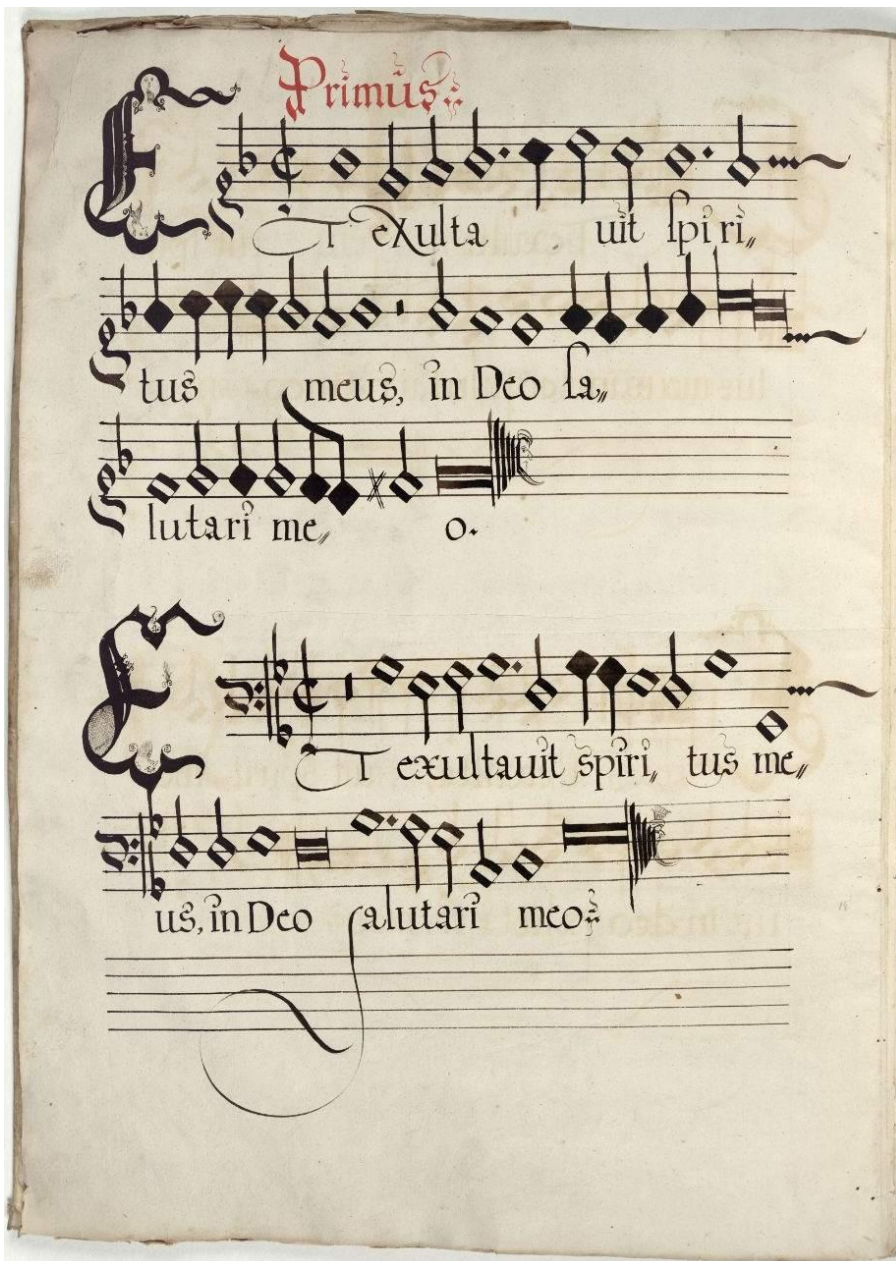 Primus
ET exulta uit spiri„
tus meus, in Deo sa„
lutari me„ o.
ET exultauit spiri„ tus me„
us, in Deo salutari meo